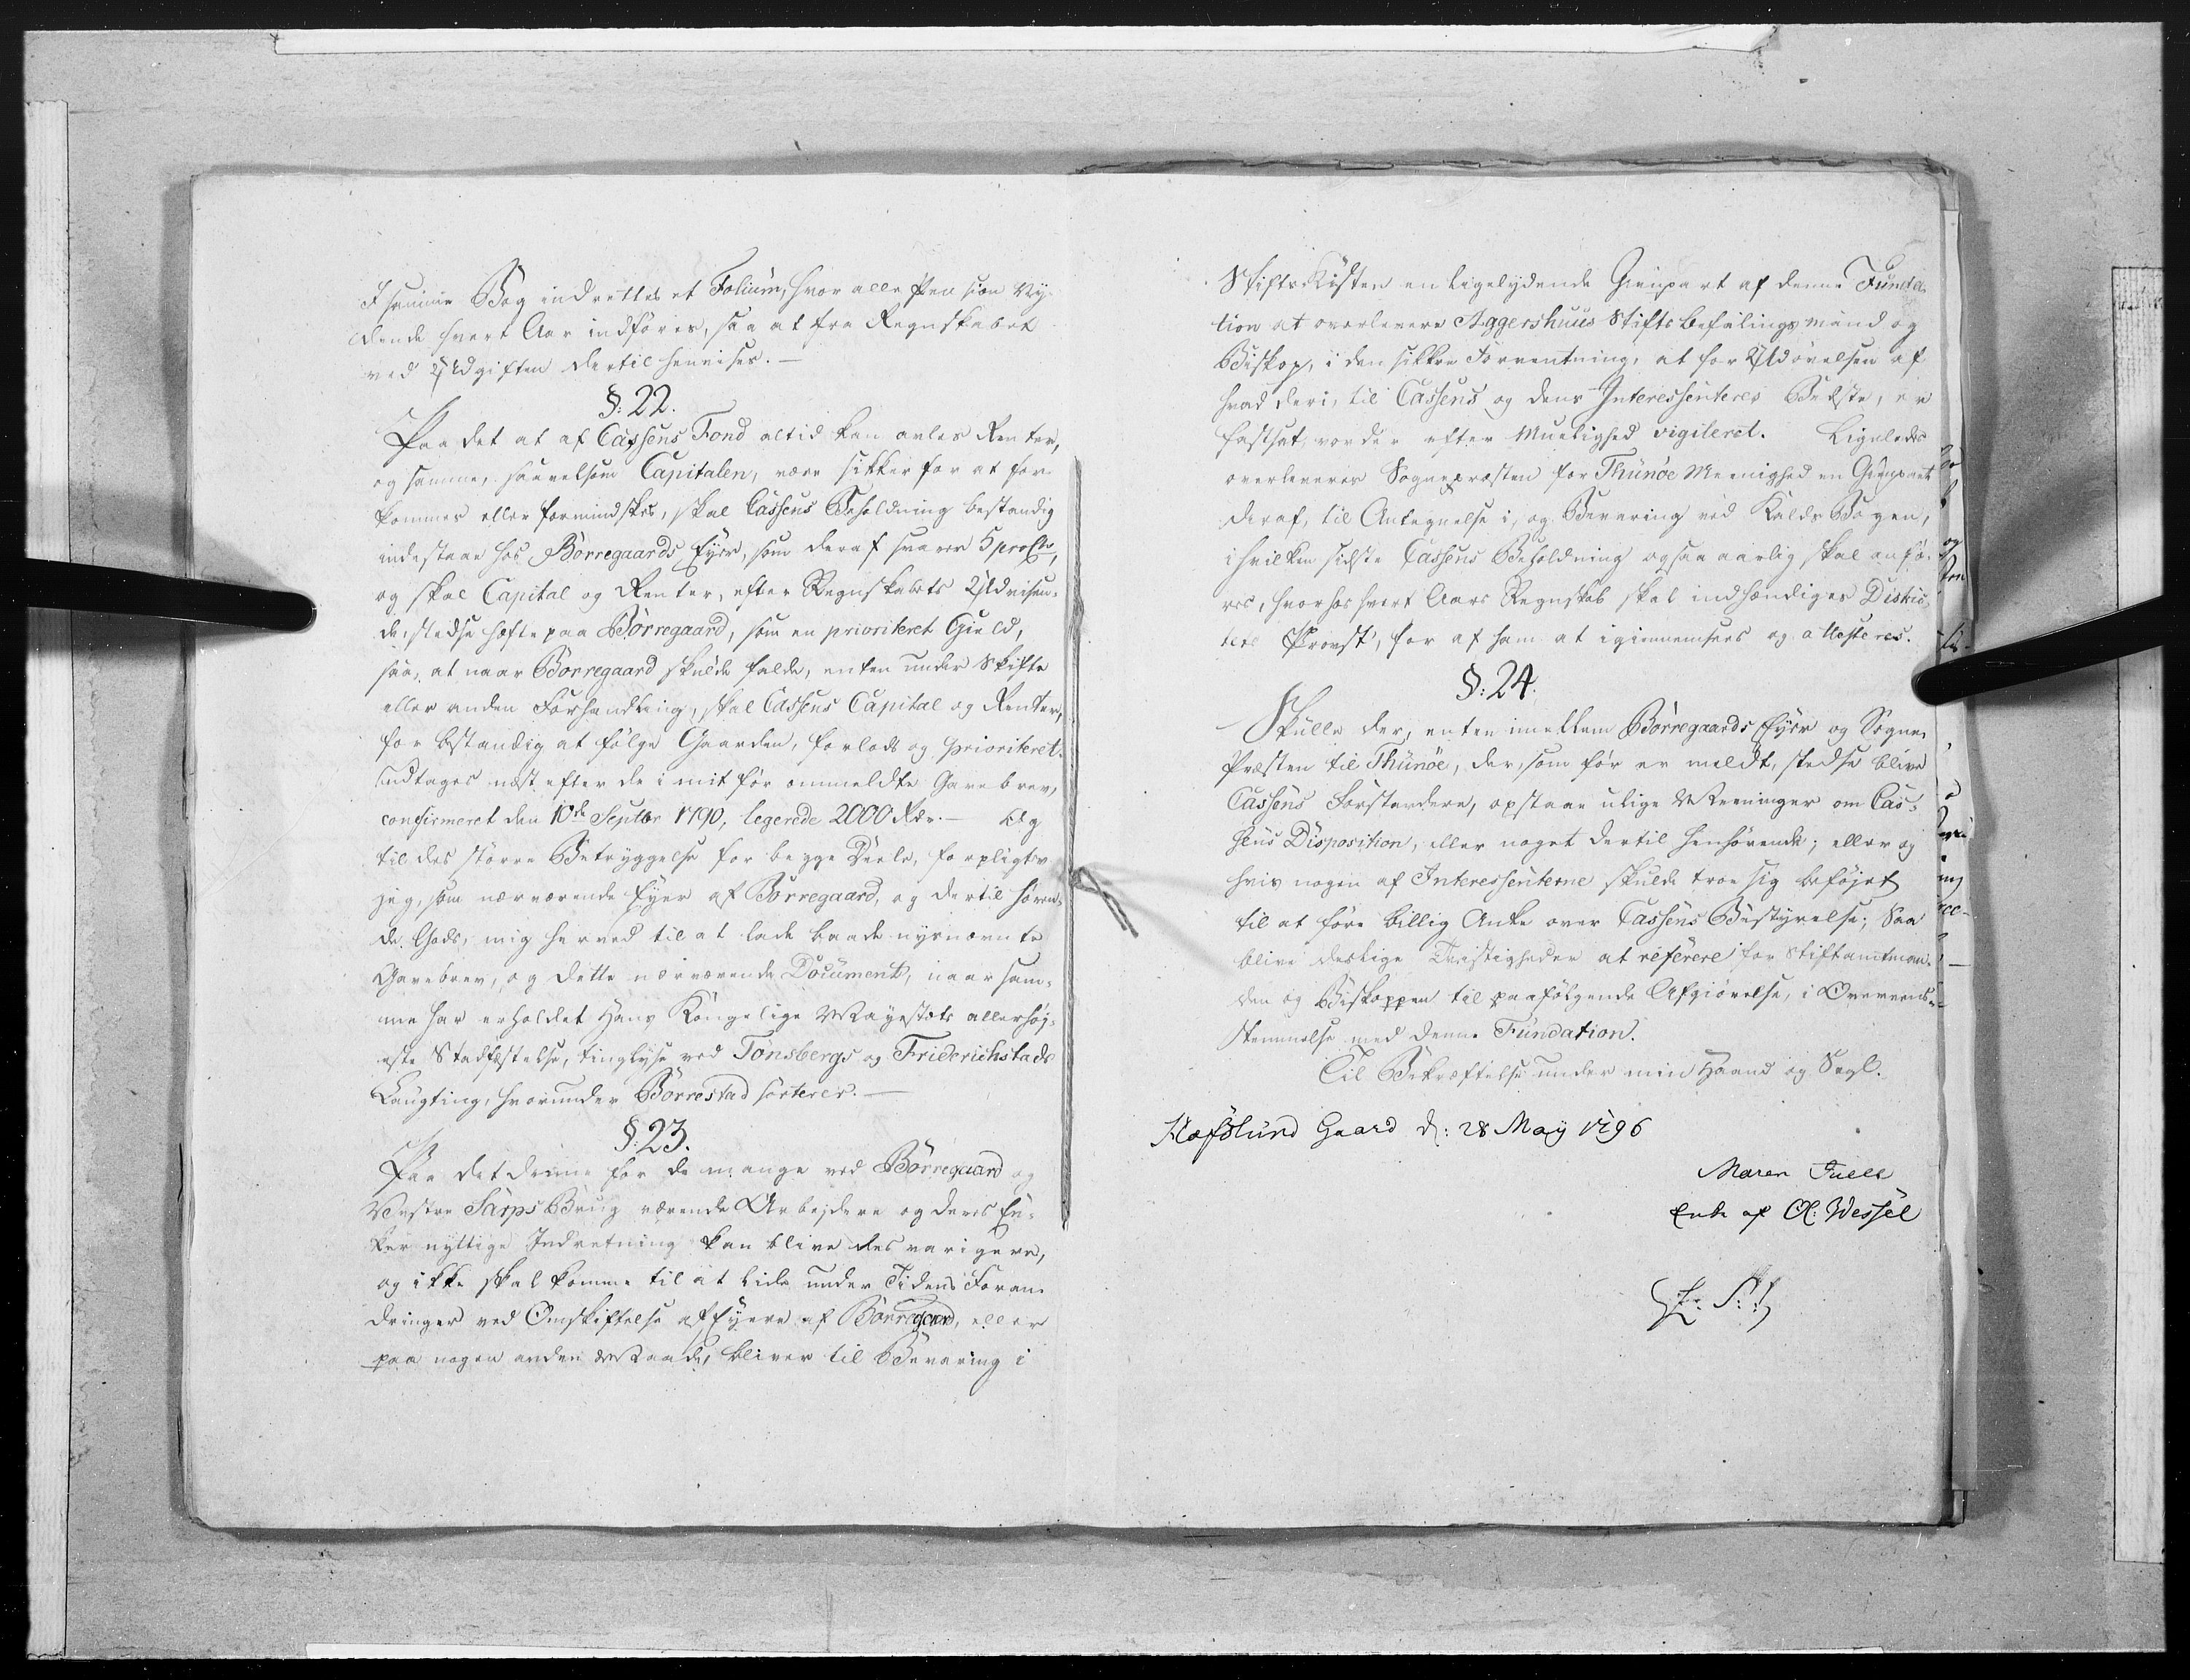 I samme Bog indrettes et Folium, hvor alle Pension Ny-
dende hvert Aar indføres, saa at fra Regnskabet
ved Udgiften dertil henvises. —
§: 22.
Paa det at af Cassens Fond altid kan avles Renter,
og samme, saavelsom Capitalen, være sikker for at for-
kommes eller formindskes, skal Cassens Beholdning bestandig
indestaae hos Borregaards Eyer, som deraf svarer 5 proCto,
og skal Capital og Renter, efter Regnskabets Udvisen-
de, stedse hefte paa Borregaard, som en prioriteret Gield,
saa, at naar Borregaard skulde falde, enten under Skifte
eller anden Forhandling, skal Cassens Capital og Renter,
for bestandig at følge Gaarden, forlods og prioriteret
udtages næst efter de i mit før ommeldte Gavebrev,
confirmeret den 10de Septbr 1790, legerede 2000 Rdr. — Og
til des større Betryggelse for begge Deele, forpligter
jeg, som nærværende Eyer af Borregaard, og dertil høren-
de Gods, mig herved til at lade baade nysnævnte
Gavebrev, og dette nærværende Document, naar sam-
me har erholdet Hans Kongelige Mayestæts allerhøj-
este Stadfæstelse, tinglyse ved Tonsbergs og Friderichstads
Laugting, hvorunder Borrestad sorterer. —
§: 23.
Paa det denne for de mange ved Borregaard og
Vestre Sarps Brug værende Arbejdere og deres En-
ker nyttige Indretning kan blive des varigere,
og ikke skal komme til at lide under Tidens Foran-
dringer ved Omskiftelse af Eyere af Borregaard, eller
paa nogen anden Maade, bliver til Bevaring i
Stifts Kisten en ligelydende Gienpart af denne Funda-
tion at overlevere Aggershuus Stiftsbefalingsmand og
Biskop, i den sikkre Forventning, at for Udøvelsen af
hvad deri, til Cassens og dens Interessenteres Bedste, er
fastsat, vorder efter Muelighed vigileret. Ligeledes
overleveres Sognepræsten for Thunøe Meenighed en Gienpart
deraf, til Antegnelse i, og Bevaring ved Kalds Bogen,
i hvilken sidste Cassens Beholdning ogsaa aarlig skal anfø-
res, hvorhos hvert Aars Regnskab skal indhændiges Distric-
tets Provst, for af ham at igiennemsees og attesteres.
§: 24.
Skulle der, enten imellem Borregaards Eyer og Sogne-
Præsten til Thunøe, der, som før er meldt, stedse blive
Cassens Forstandere, opstaae ulige Meeninger om Cas-
sens Disposition, eller noget dertil henhørende; eller og
hvis nogen af Interessenterne skulde troe sig beføjet
til at føre billig Anke over Cassens Bestyrelse; Saa
blive deslige Tvistigheder at referere for Stiftamtman-
den og Biskoppen til paafølgende Afgiørelse, i Overeens-
stemmelse med denne Fundation.
Til Bekræftelse under min Haand og Segl.
Hafslund Gaard d: 28 May 1796
Maren Juell
Enke af Ol: Wessel
(L: S:)